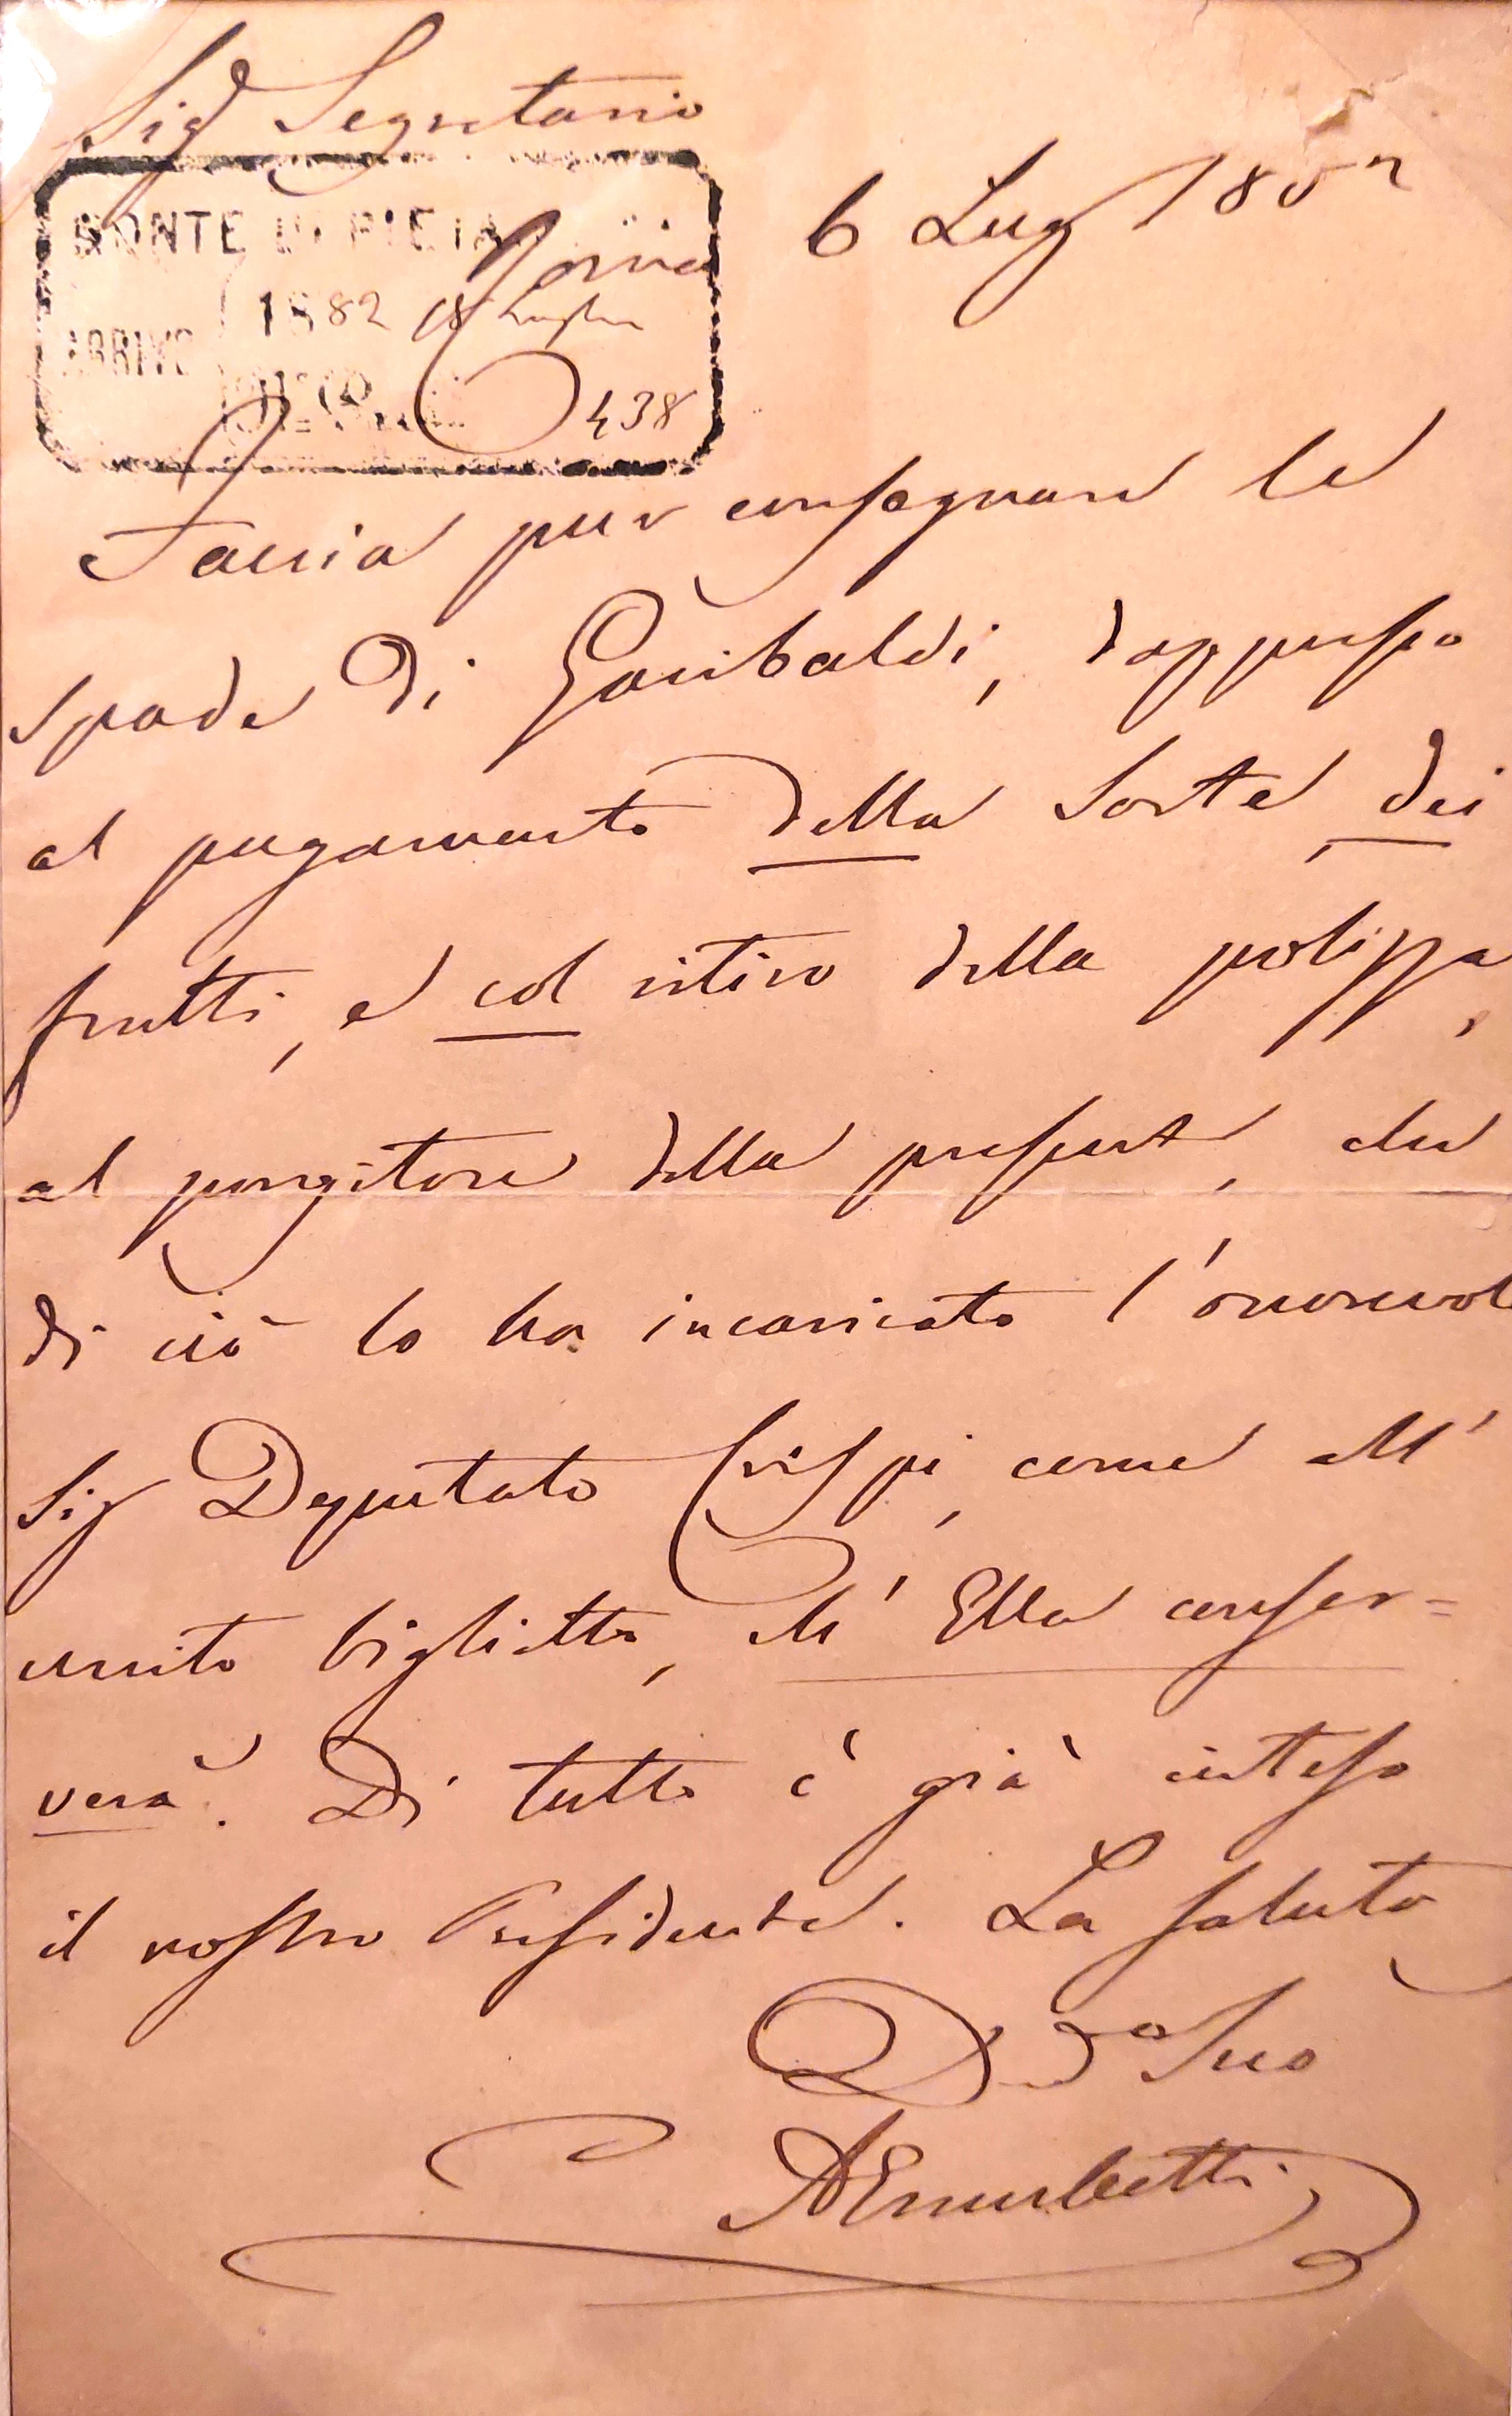 Sig.r Segretario
MONTE DI PIETÀ
Roma 6 Lug 1882
1882 18 Luglio
ARRIVO
438
Faccia pur consegnare la
spada di Garibaldi, dappresso
al pagamento della sorte, dei
frutti, e col ritiro della polizza,
al porgitore della presente, che
di ciò lo ha incaricato l'onorevole
Sig Deputato Crispi, come all'
unito biglietto, ch' Ella conser=
verà. Di tutto è già inteso
il nostro Presidente. La saluto
Suo